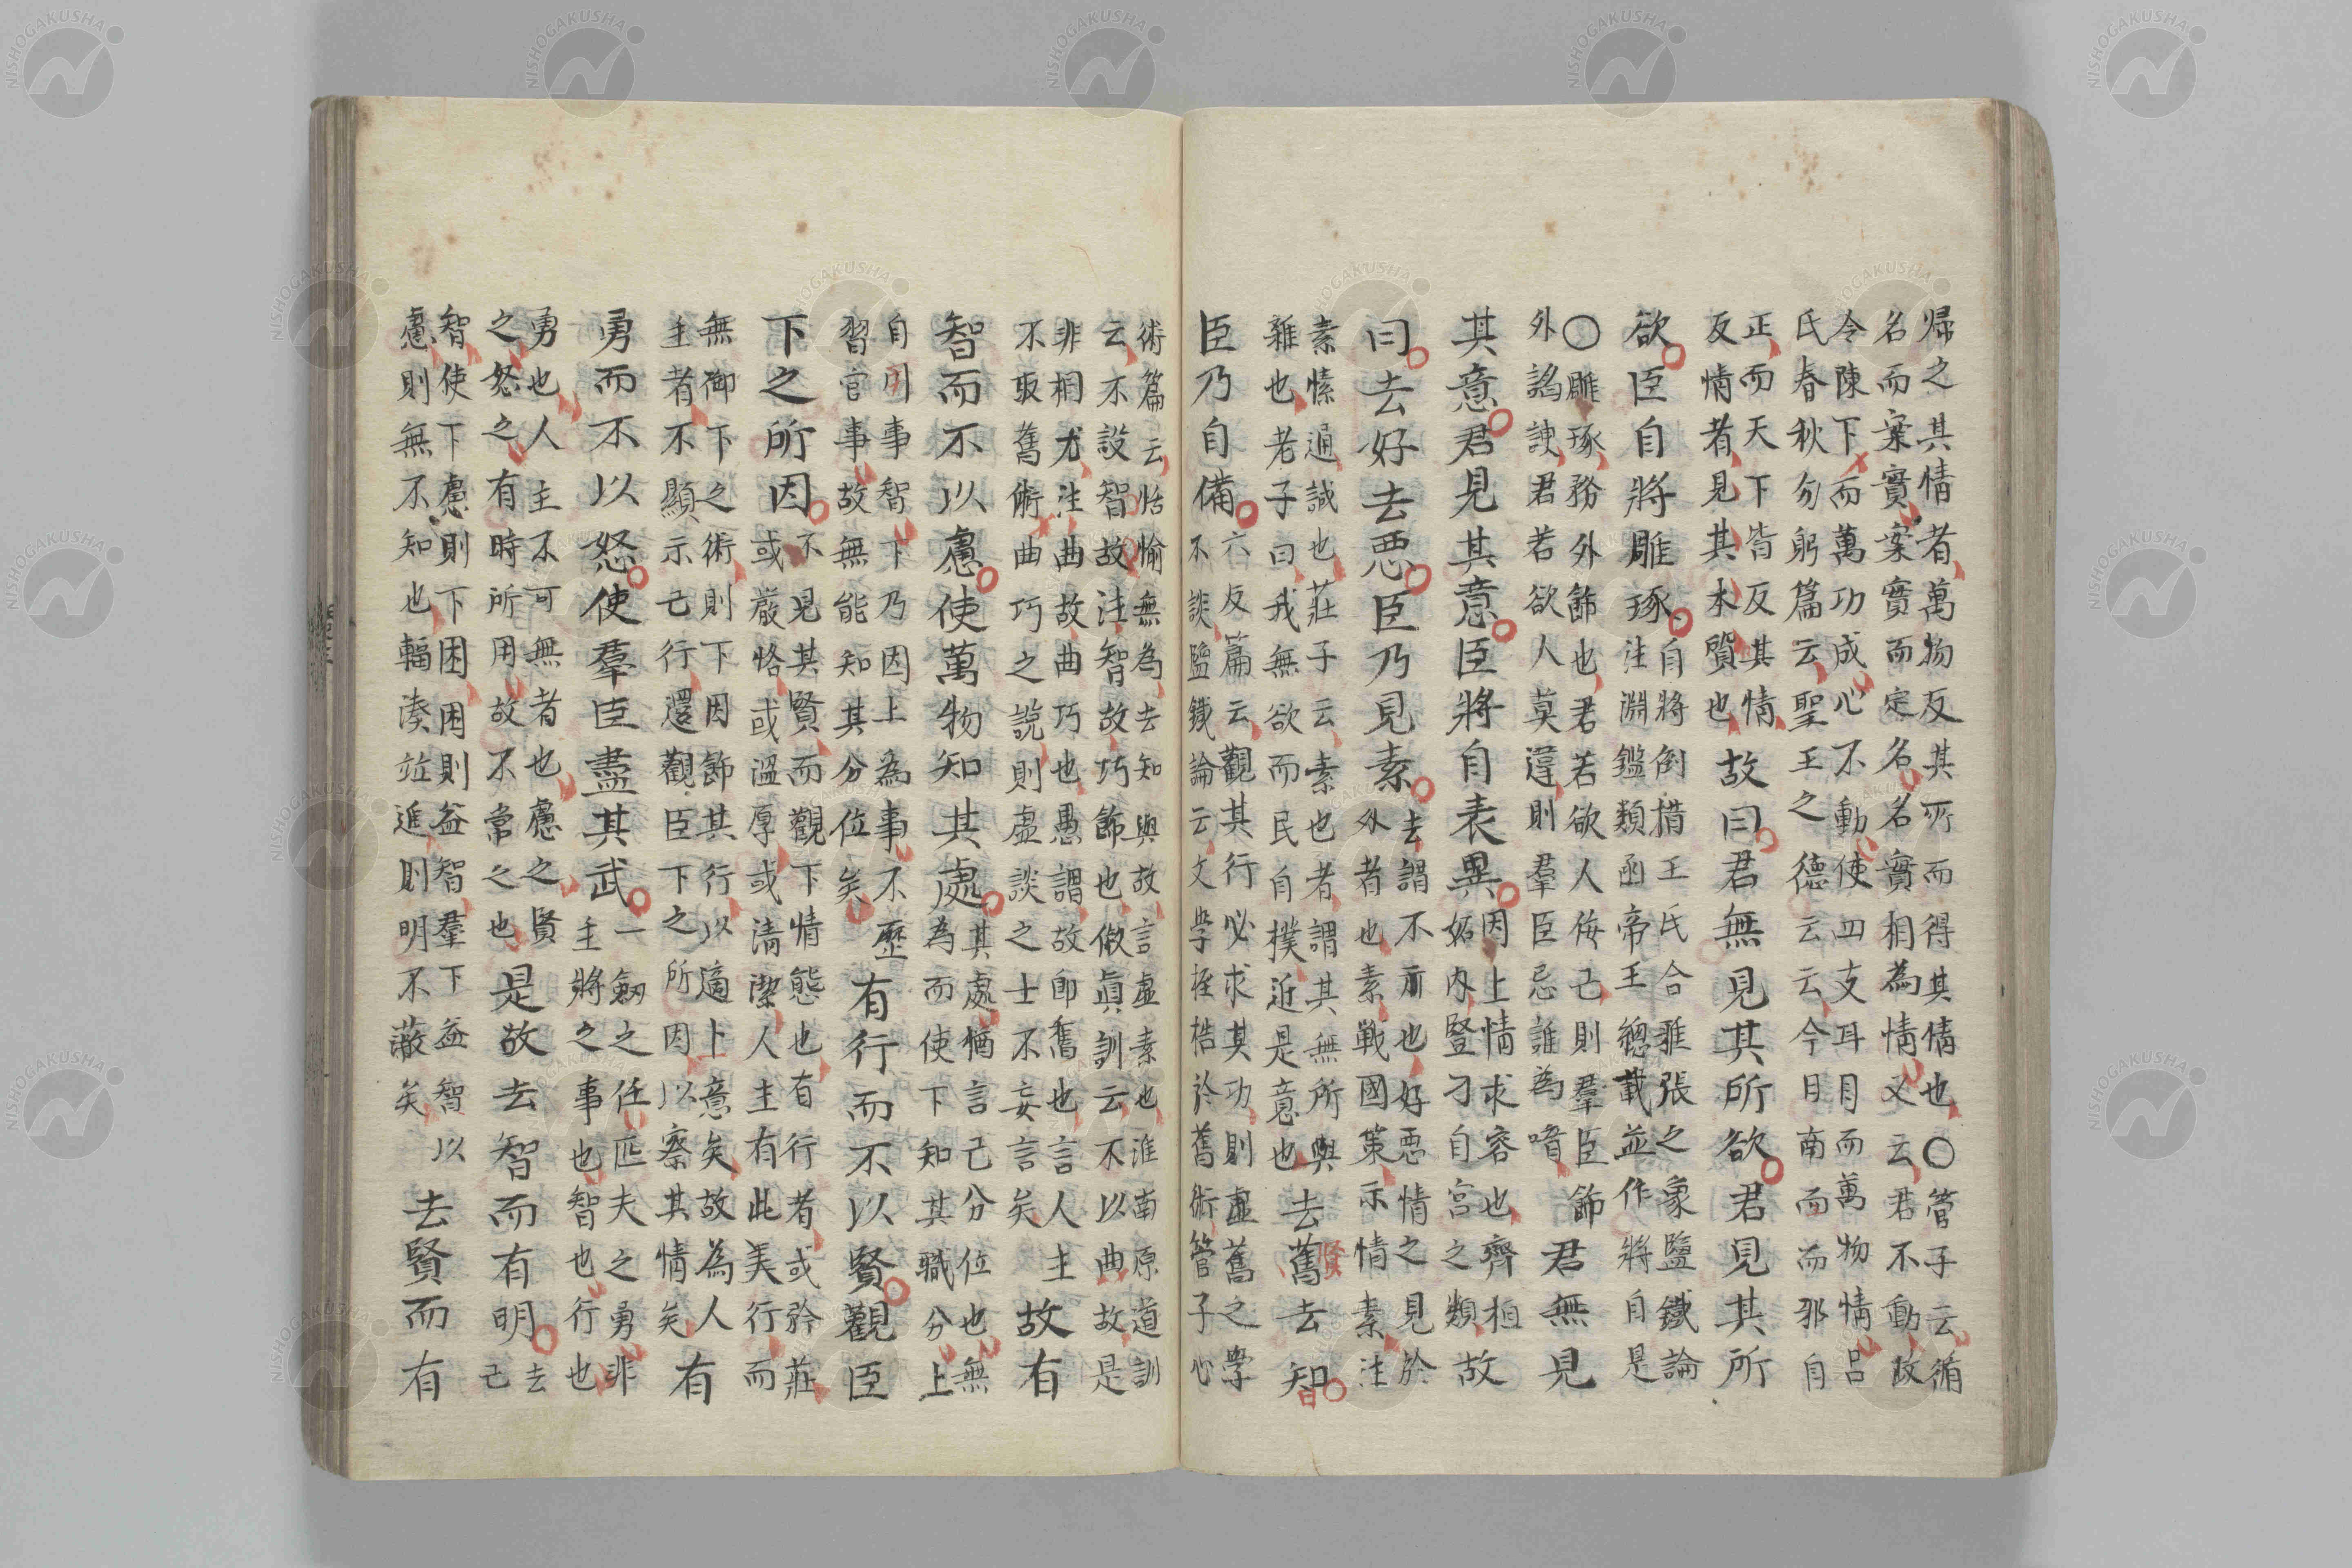 歸之其情者萬物反其所而得其情也〇管子云循
名而案實案實而定名名實相為情又云君不動政
令陳下而萬功成心不動使四支耳目而萬物情呂
氏春秋勿躬篇云聖王之德云云今日南面而邪自
正而天下皆反其情
反情者見其本質也故曰君無見其所欲君見其所
欲臣自將雕琢自將倒楷王氏合雅張之象鹽鐵論
注淵鑑類函帝王總載並作將自是
〇雕琢務外飾也君若欲人侮己則羣臣飾
外謟諛君若欲人莫違則羣臣忌誰為喑君無見
其意君見其意臣將自表異因上情求容也齊桓
妬內豎刁自宮之類故
曰去好去惡臣乃見素去謂不示也好惡情之見於
外者也素戰國策示情素注
素愫通誠也莊子云素也者謂其無所與
雜也老子曰我無欲而民自樸近是意也去舊去智
賢
臣乃自備六反篇云觀其行必求其功則虛舊之學
不談鹽鐵論云文學桎梏於舊術管子心
術篇云恬愉無為去知與故言虛素也淮南原道訓
云不設智故注智故巧飾也俶眞訓云不以曲故是
非相尤注曲故曲巧也愚謂故卽舊也言人主
不取舊術曲巧之說則虛談之士不妄言矣故有
智而不以慮使萬物知其處其處猶言己分位也無
為而使下知其職分上
自用事智下乃因上為事不歷
習官事故無能知其分位矣有行而不以賢觀臣
下之所因不見其賢而觀下情態也有行者或矜莊
或嚴恪或溫厚或淸潔人主有此美行而
無御下之術則下因飾其行以適上意矣故為人
主者不顯示己行還觀臣下之所因以察其情矣有
勇而不以怒使羣臣盡其武一劔之任匹夫之勇非
主將之事也智也行也
勇也人主不可無者也慮之賢
之怒之有時所用故不常之也是故去智而有明去
己
智使下慮則下困困則益智羣下益智以
慮則無不知也輻湊竝進則明不蔽矣去賢而有